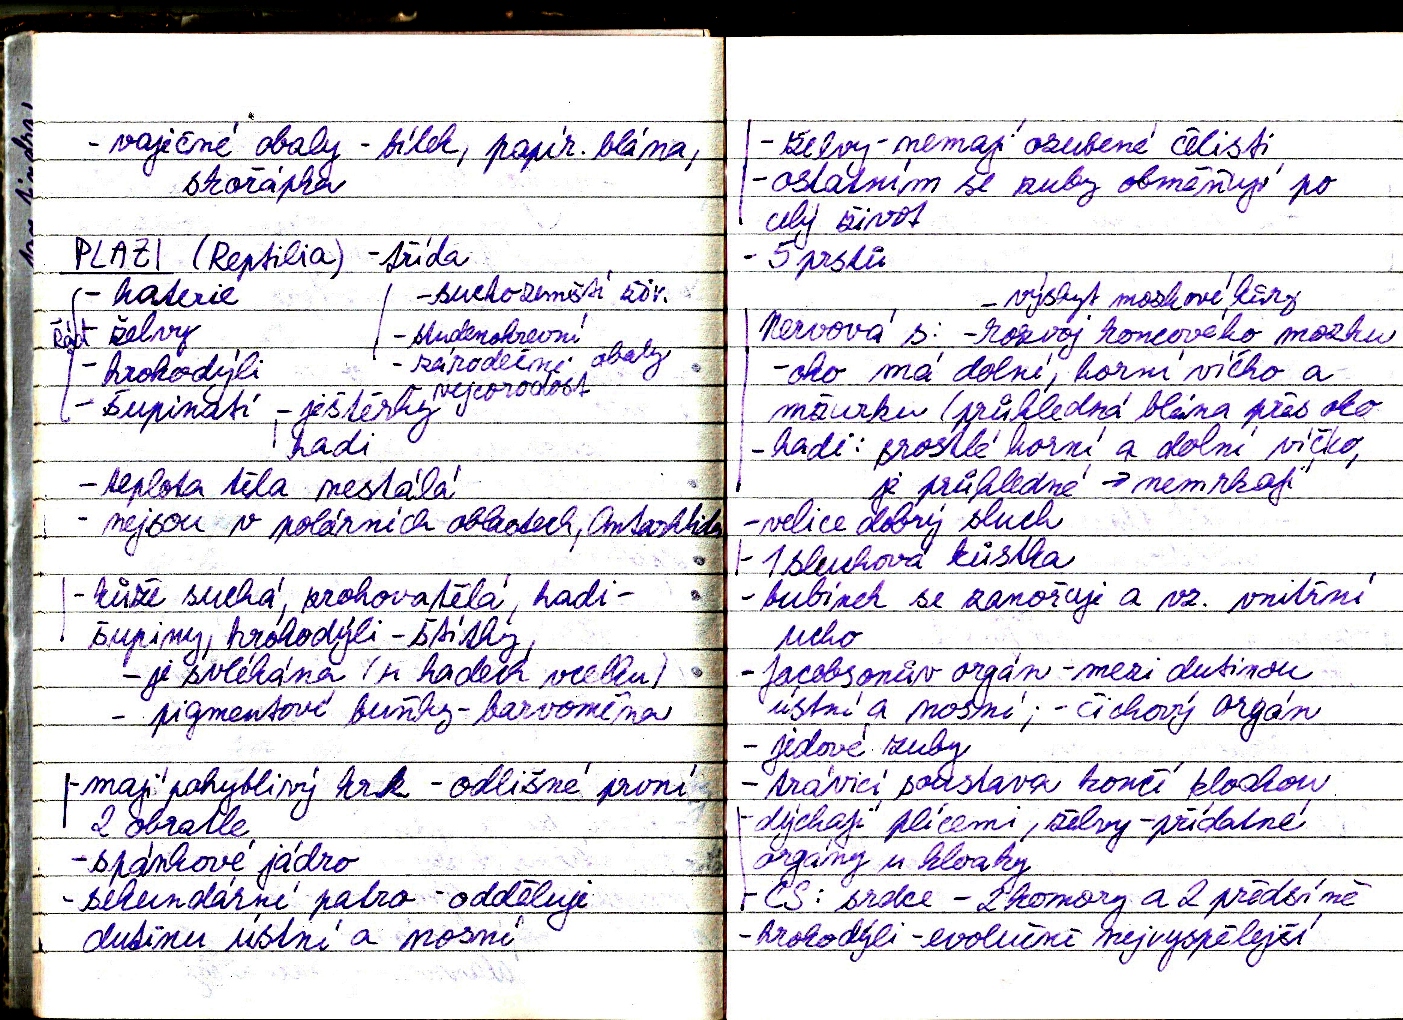 - vaječné obaly - bílek, papír. blána,
skořápka
PLAZI (Reptilia) - třída
- haterié
- suchozemští živ.
Řád
- želvy
- studenokrevní
- krokodýli
- zárodečné obaly
vejcorodost
- šupinatí - ještěrky
hadi
- teplota těla nestálá
- nejsou v polárních oblastech, Antarktida
- kůže suchá, zrohovatělá, hadi -
šupiny, krokodýli - štítky,
- je svlékána (u hadech vcelku)
- pigmentové buňky - barvoměna
- mají pohyblivý krk - odlišné první
2 obratle
- spánkové jádro
- sekundární patro - odděluje
dutinu ústní a nosní
- želvy - nemají ozubené čelisti
- ostatním se zuby obměňují po
celý život
- 5 prstů
- výskyt mozkové kůry
Nervová s: - rozvoj koncového mozku
- oko má dolní, horní víčko a
mžurku (průhledná blána přes oko
- hadi: srostlé horní a dolní víčko,
je průhledné → nemrkají
- velice dobrý sluch
- 1 sluchová kůstka
- bubínek se zanořuje a vz. vnitřní
ucho
- Jacobsonův orgán - mezi dutinou
ústní a nosní; - čichový orgán
- jedové zuby
- trávicí soustava končí kloakou
- dýchají plícemi, želvy - přídatné
orgány u kloaky
- CS: srdce - 2 komory a 2 předsíně
- krokodýli - evolučně nejvyspělejší